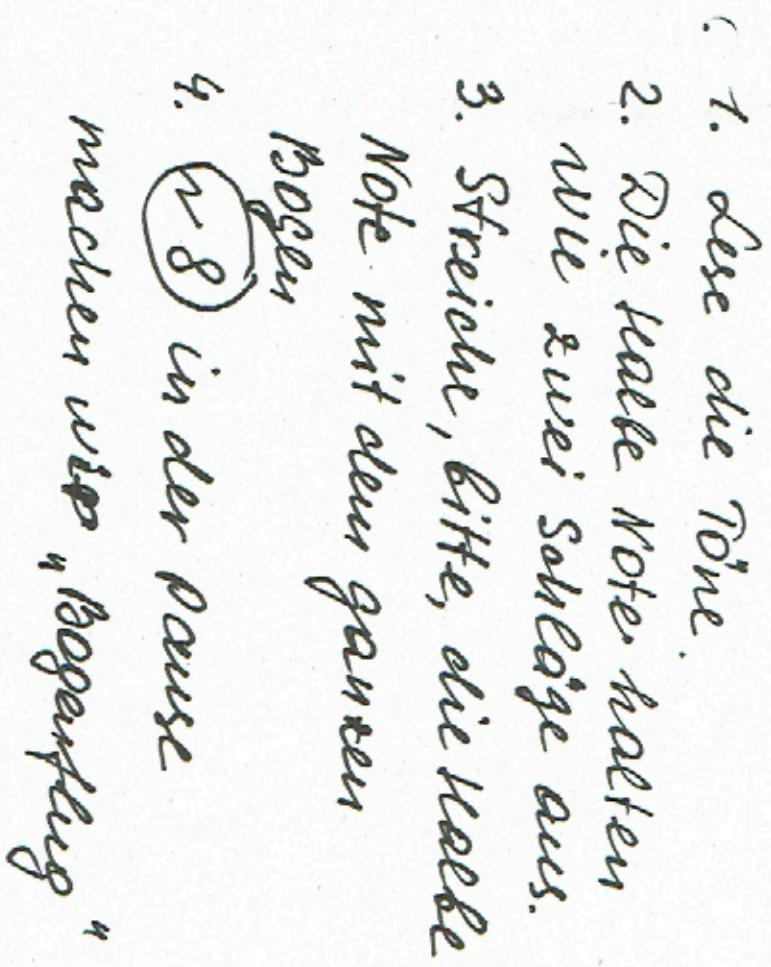 1. Lese die Töne.
2. Die Halbe Note halten
wie zwei Schläge aus.
3. Streiche, bitte, die Halbe
Note mit dem ganzen
Bogen
4. N 8 in der Pause
machen wir "Bogenflug"